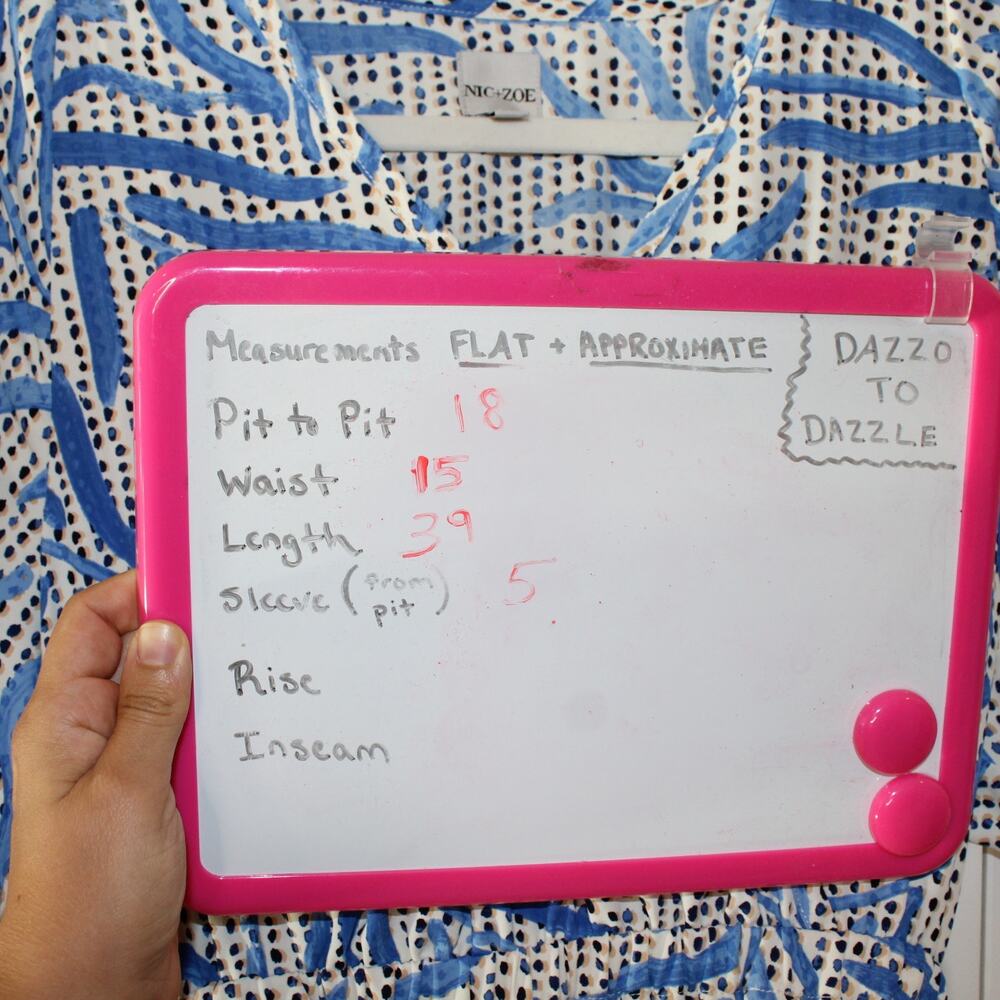 NIC+ZOE
Measurements FLAT + APPROXIMATE
DAZZO
TO
DAZZLE
Pit to Pit 18
Waist 15
Length 39
Sleeve (from pit) 5
Rise
Inseam